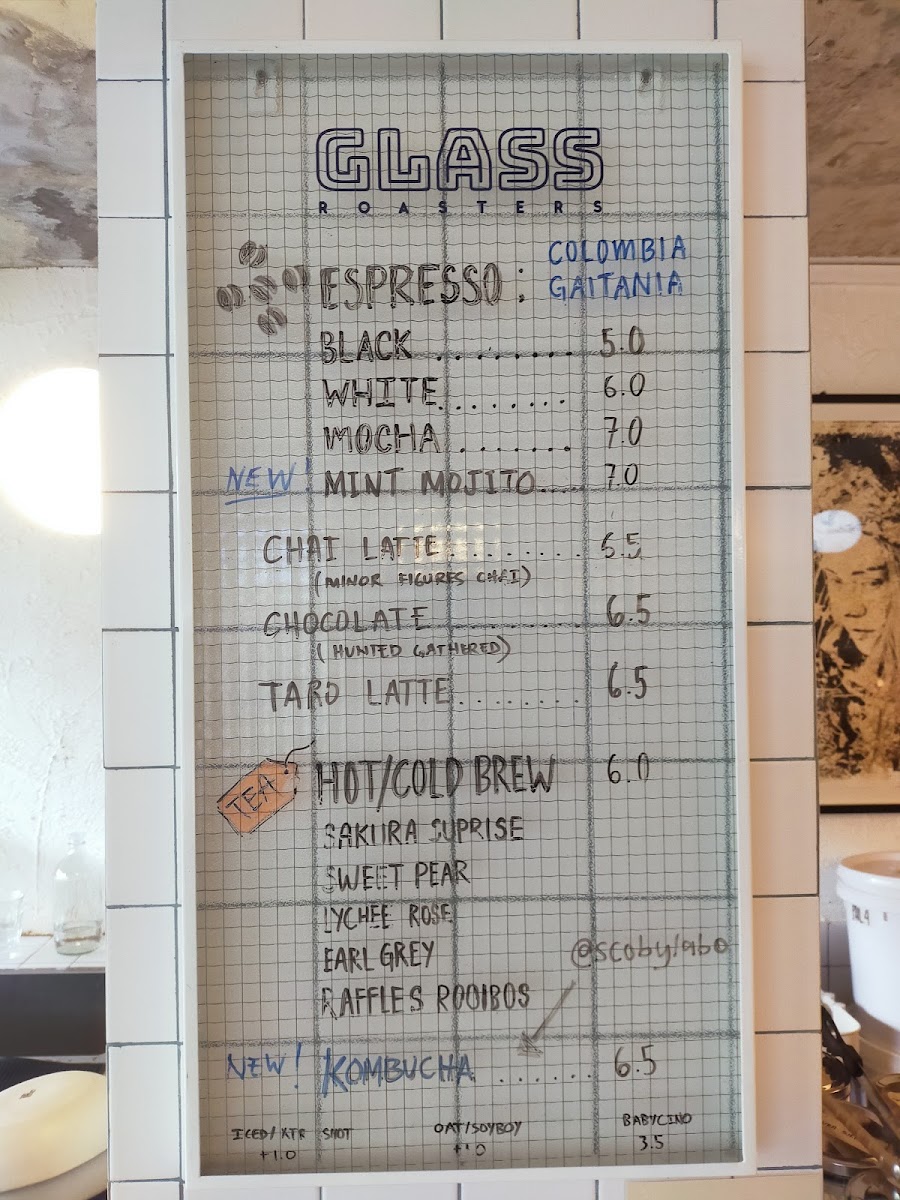 GLASS
ROASTERS
ESPRESSO: COLOMBIA GAITANIA
BLACK ......... 5.0
WHITE ........ 6.0
MOCHA ........ 7.0
NEW! MINT MOJITO.... 7.0
CHAI LATTE ........ 6.5
(MINOR FIGURES CHAI)
CHOCOLATE ........ 6.5
(HUNTED GATHERED)
TARO LATTE ........ 6.5
TEA HOT/COLD BREW 6.0
SAKURA SUPRISE
SWEET PEAR
LYCHEE ROSE
EARL GREY
@scobylabo
RAFFLES ROOIBOS
NEW! KOMBUCHA ....... 6.5
ICED/XTR SHOT OAT/SOYBOY BABYCINO
+1.0 +1.0 3.5